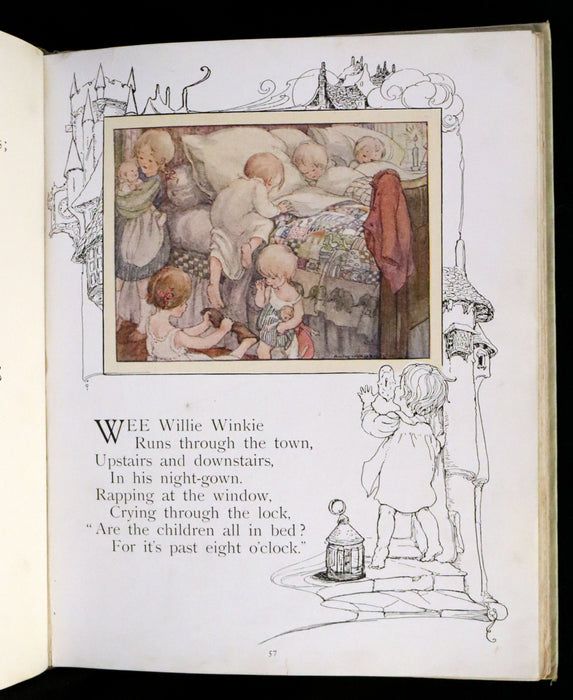 ;
WEE Willie Winkie
Runs through the town,
Upstairs and downstairs,
In his night-gown.
Rapping at the window,
Crying through the lock,
"Are the children all in bed?
For it's past eight o'clock."
57